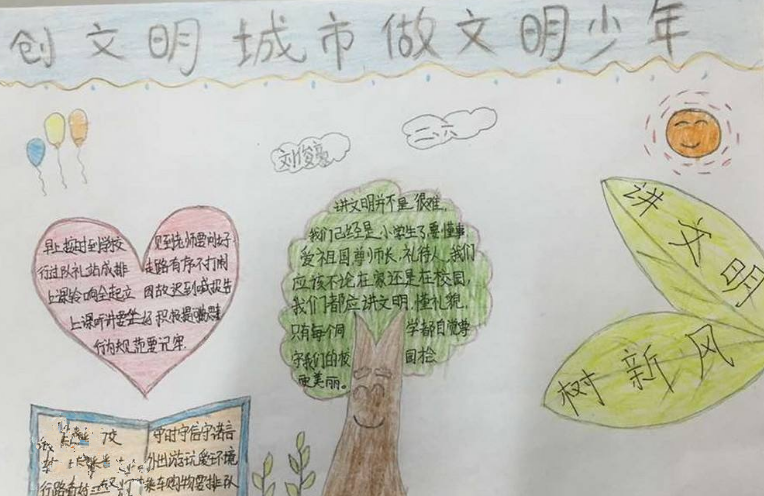 创文明城市做文明少年
刘俊亮
二、六
早上按时到学校
见到老师要问好
行过队礼站成排
走路有序不打闹
上课铃响全起立
因故迟到喊报告
上课听讲要坐好
积极提问题
行为规范要记牢
讲文明并不是很难,
我们已经是小学生了要懂事
爱祖国尊师长,礼待人,我们
应该不论在家还是在校园,
我们都应讲文明,懂礼貌
只有每个同学都自觉
守我们的校园
更美丽。
讲文明
树新风
守时守信守诺言
外出游玩爱环境
乘车购物要排队
行路